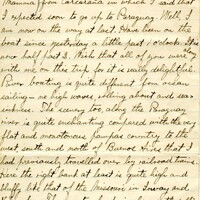 Mamma from Carcarana in which I said that
I expected soon to go up to Paraguay. Well, I
am now on the way at last. Have been on the
boat since yesterday a little past 1 o'clock. It is
now half past 3. Wish that all of you were
with me on this trip for it is really delightful.
River boating is quite different from ocean
sailing - no high waves, rolling about and no sea
sickness. The scenery too along the Paraguay
river is quite enchanting compared with the very
flat and monotonous pampas country to the
west south and north of Buenos Aires that I
had previously travelled over by railroad train.
Here the right bank at least is quite high and
bluffy like that of the Missouri in Iowa and